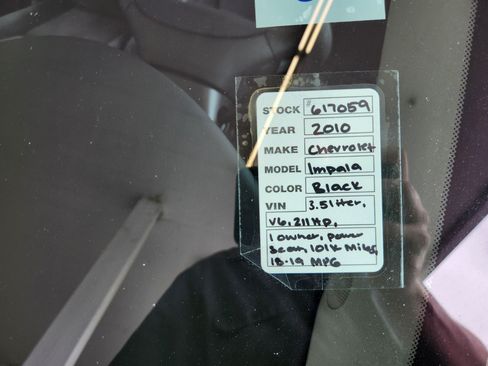 STOCK #617059
YEAR 2010
MAKE Chevrolet
MODEL Impala
COLOR Black
VIN 3.5liter,
V6, 211 HP,
1 owner, power
Seam, 101K Miles,
18-19 MPG